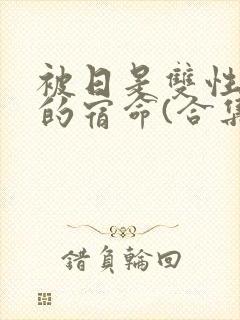 被日是雙性
的宿命(合集
錯負輪回